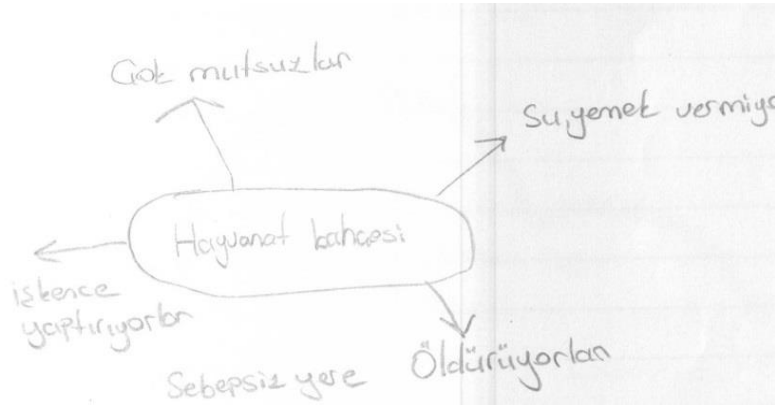 Çok mutsuzlar
Su, yemek vermiyo
Hayvanat bahçesi
işkence
yaptırıyorlar
Sebepsiz yere Öldürüyorlar